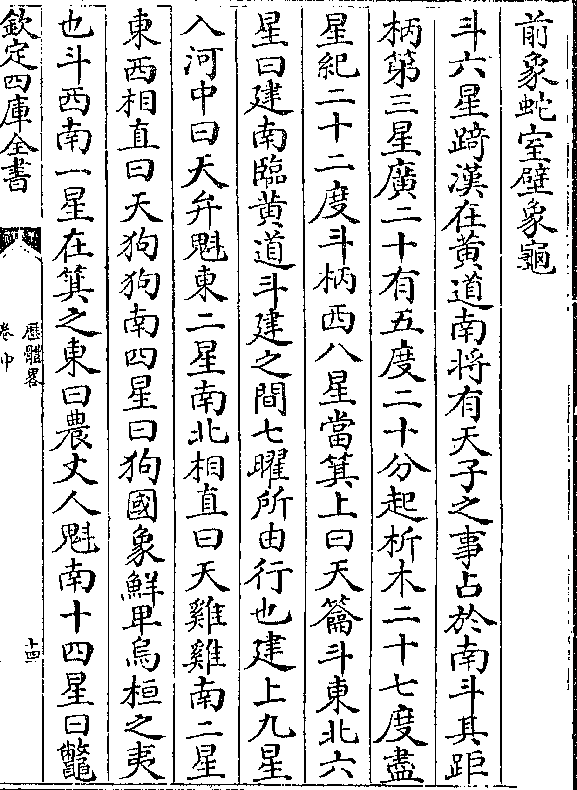 前象蛇室壁象龜
斗六星踦漢在黄道南将有天子之事占於南斗其距
柄第三星廣二十有五度二十分起析木二十七度盡
星紀二十二度斗柄西八星當箕上曰天籥斗東北六
星曰建南臨黄道斗建之間七曜所由行也建上九星
入河中曰天弁魁東二星南北相直曰天雞雞南二星
東西相直曰天狗狗南四星曰狗國象鮮卑烏桓之夷
也斗西南一星在箕之東曰農丈人魁南十四星曰鼈
欽定四庫全書
歷體略
卷中
十四